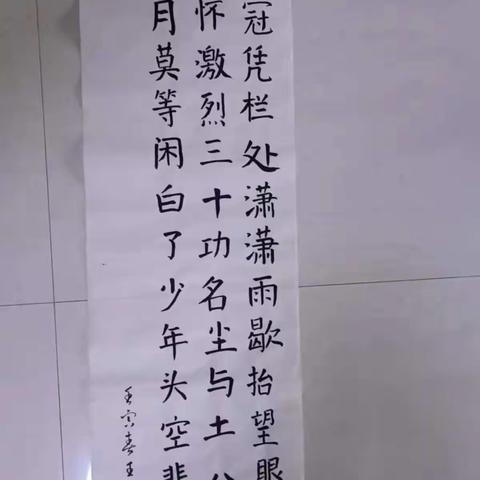 冠凭栏处潇潇雨歇抬望眼
怀激烈三十功名尘与土八
月莫等闲白了少年头空悲
壬寅春王